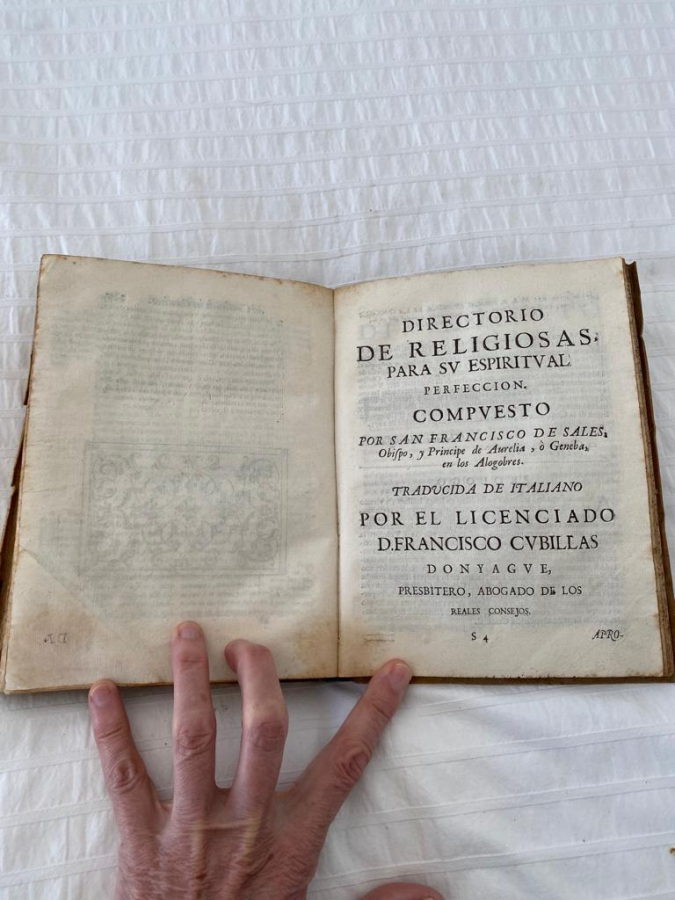 DIRECTORIO
DE RELIGIOSAS,
PARA SV ESPIRITVAL
PERFECCION.
COMPVESTO
POR SAN FRANCISCO DE SALES,
Obiſpo, y Principe de Aurelia, ò Geneba,
en los Alogobres.
TRADUCIDA DE ITALIANO
POR EL LICENCIADO
D.FRANCISCO CVBILLAS
DONYAGVE,
PRESBITERO, ABOGADO DE LOS
REALES CONSEJOS.
S 4
APRO-